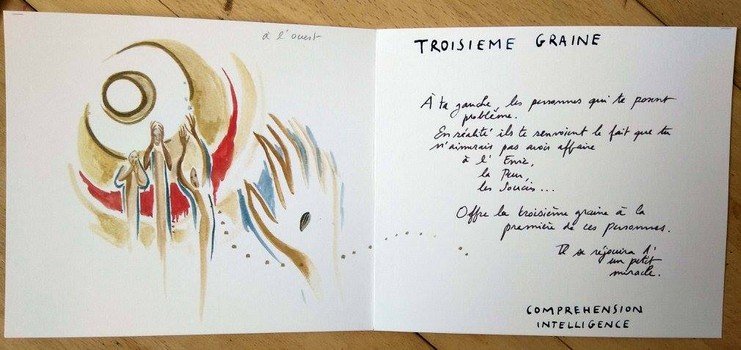 à l'ouest
TROISIEME GRAINE
À ta gauche, les personnes qui te posent
problème.
En réalité ils te renvoient le fait que tu
n'aimerais pas avoir affaire
à l'Envie,
la Peur,
les Soucis...
Offre la troisième graine à la
première de ces personnes.
se réjouira d'
un petit
miracle.
COMPREHENSION
INTELLIGENCE